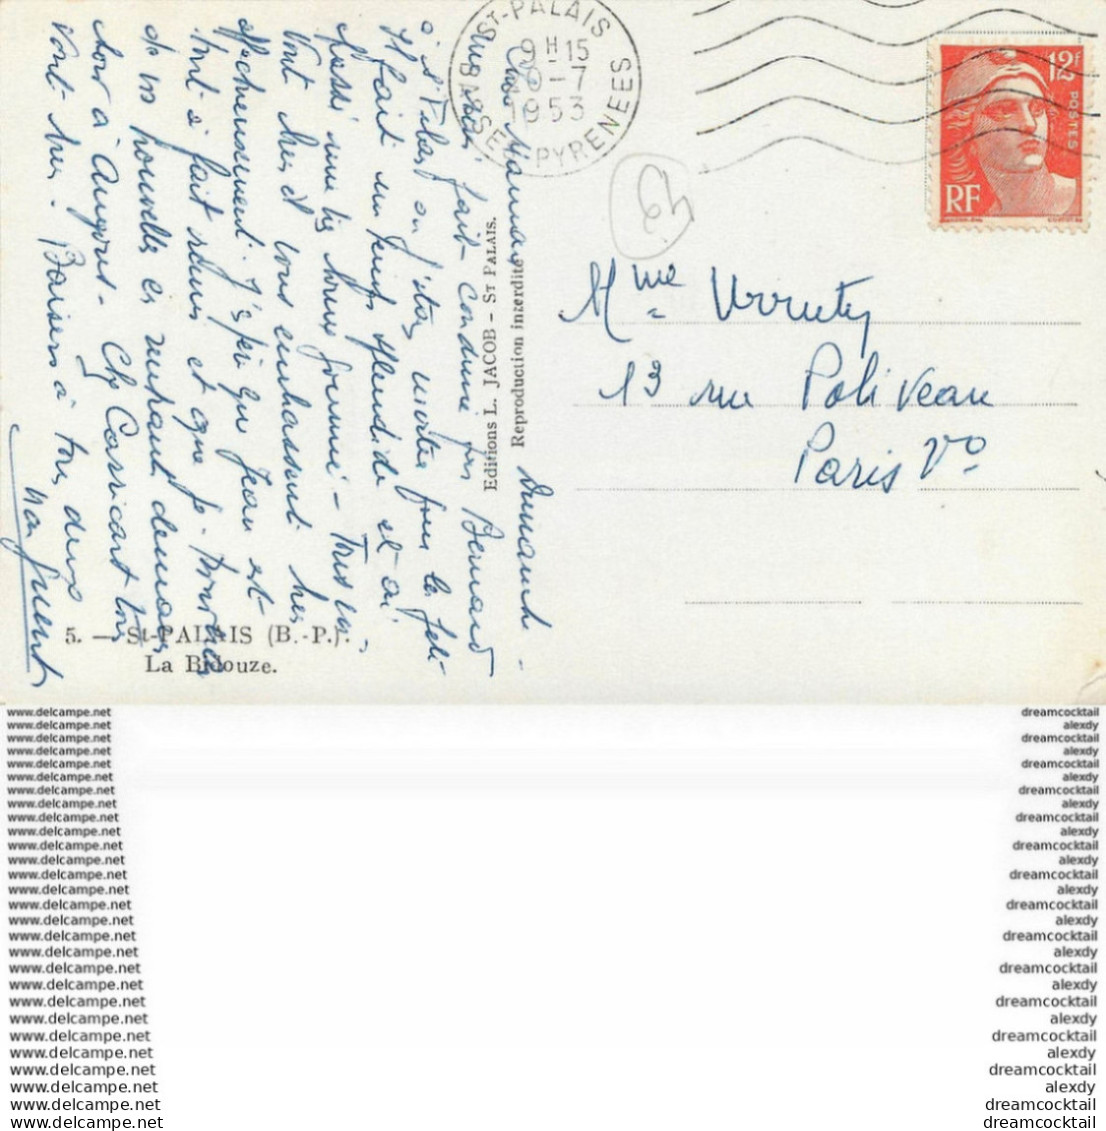 ST-PALAIS
9H15
9-7
1953
BASSES PYRENEES
12F
POSTES
RF
63
Mme Urruty
13 rue Poliveau
Paris Vo.
Dimanche -
Chère Miannay
fait conduire par Bernard
à St Palais où j'étais invitée pour le
Il fait un temps splendide et ai
réussi une très bonne journée - Tous
vont bien et vous embrassent bien
affectueusement. J'espère que Jean est
tout à fait remis et que je trouverai
de vos nouvelles en rentrant demain
soir à Angous - Chez Carricart tous
vont bien. Baisers à tous deux
Marguerite
Editions L. JACOB - ST PALAIS.
Reproduction interdite
5. — St-PALAIS (B.-P.).
La Bidouze.
www.delcampe.net
www.delcampe.net
www.delcampe.net
www.delcampe.net
www.delcampe.net
www.delcampe.net
www.delcampe.net
www.delcampe.net
www.delcampe.net
www.delcampe.net
www.delcampe.net
www.delcampe.net
www.delcampe.net
www.delcampe.net
www.delcampe.net
www.delcampe.net
www.delcampe.net
www.delcampe.net
www.delcampe.net
www.delcampe.net
www.delcampe.net
www.delcampe.net
www.delcampe.net
www.delcampe.net
www.delcampe.net
www.delcampe.net
www.delcampe.net
www.delcampe.net
dreamcocktail
alexdy
dreamcocktail
alexdy
dreamcocktail
alexdy
dreamcocktail
alexdy
dreamcocktail
alexdy
dreamcocktail
alexdy
dreamcocktail
alexdy
dreamcocktail
alexdy
dreamcocktail
alexdy
dreamcocktail
alexdy
dreamcocktail
alexdy
dreamcocktail
alexdy
dreamcocktail
alexdy
dreamcocktail
dreamcocktail